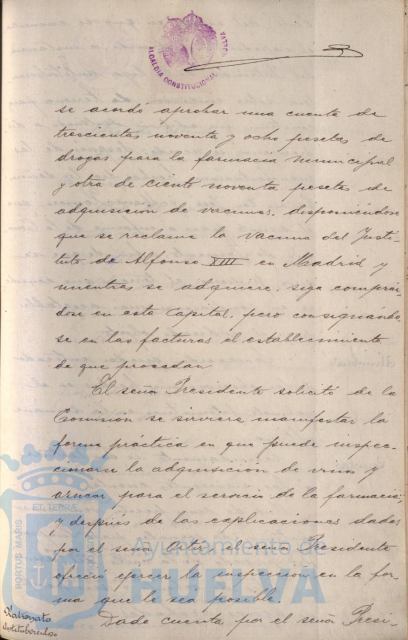 ALCALDIA CONSTITUCIONAL
se acordó aprobar una cuenta de
trescientas noventa y ocho pesetas de
drogas para la farmacia municipal
y otra de ciento noventa pesetas de
adquisición de vacunas, disponiéndose
que se reclame la vacuna del Insti-
tuto de Alfonso XIII en Madrid y
mientras se adquiere, siga comprán-
dose en esta Capital, pero consignándo-
se en las facturas el establecimiento
de que procedan
El señor Presidente solicitó de la
Comisión se sirviera manifestar la
forma práctica en que puede inspec-
cionarse la adquisición de vino y
azucar para el servicio de la farmacia;
y después de las explicaciones dadas
por el señor el señor Presidente
ofreció ejercer la inspección en la for-
ma que le sea posible.
Dada cuenta por el señor Presi-
Patronato
antituberculoso
PORTUS MARIS
ET TERRÆ
Ayuntamiento de
HUELVA